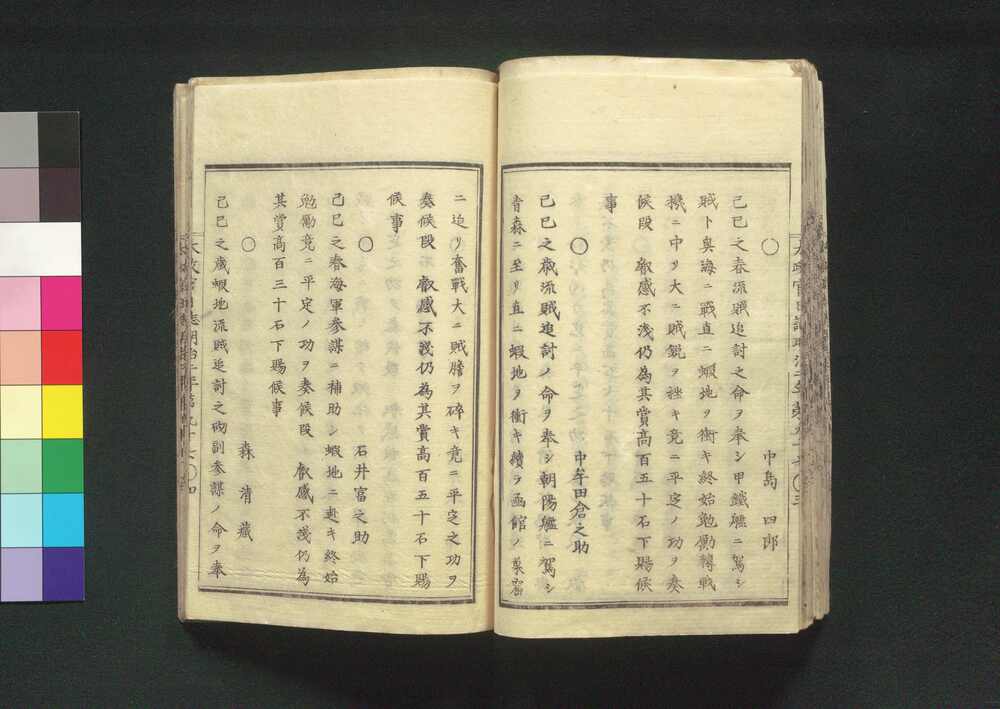 ○ 中島四郎
己巳之春流賊追討之命ヲ奉シ甲鐵艦ニ駕シ
賊ト奥海ニ戰直ニ蝦地ヲ衝キ終始勉勵轉戰
機ニ中リ大ニ賊鋭ヲ挫キ竟ニ平定ノ功ヲ奏
候段 叡感不淺仍為其賞高百五十石下賜候
事
○ 中牟田倉之助
己巳之歳流賊追討ノ命ヲ奉シ朝陽艦ニ駕シ
青森ニ至リ直ニ蝦地ヲ衝キ續テ函館ノ巣窟
ニ迫リ奮戰大ニ賊膽ヲ碎キ竟ニ平定之功ヲ
奏候段 叡感不淺仍為其賞高百五十石下賜
候事
○ 石井富之助
己巳之春海軍參謀ニ補助シ蝦地ニ赴キ終始
勉勵竟ニ平定ノ功ヲ奏候段 叡感不淺仍為
其賞高百三十石下賜候事
○ 森清藏
己巳之歳蝦地流賊追討之砌副參謀ノ命ヲ奉